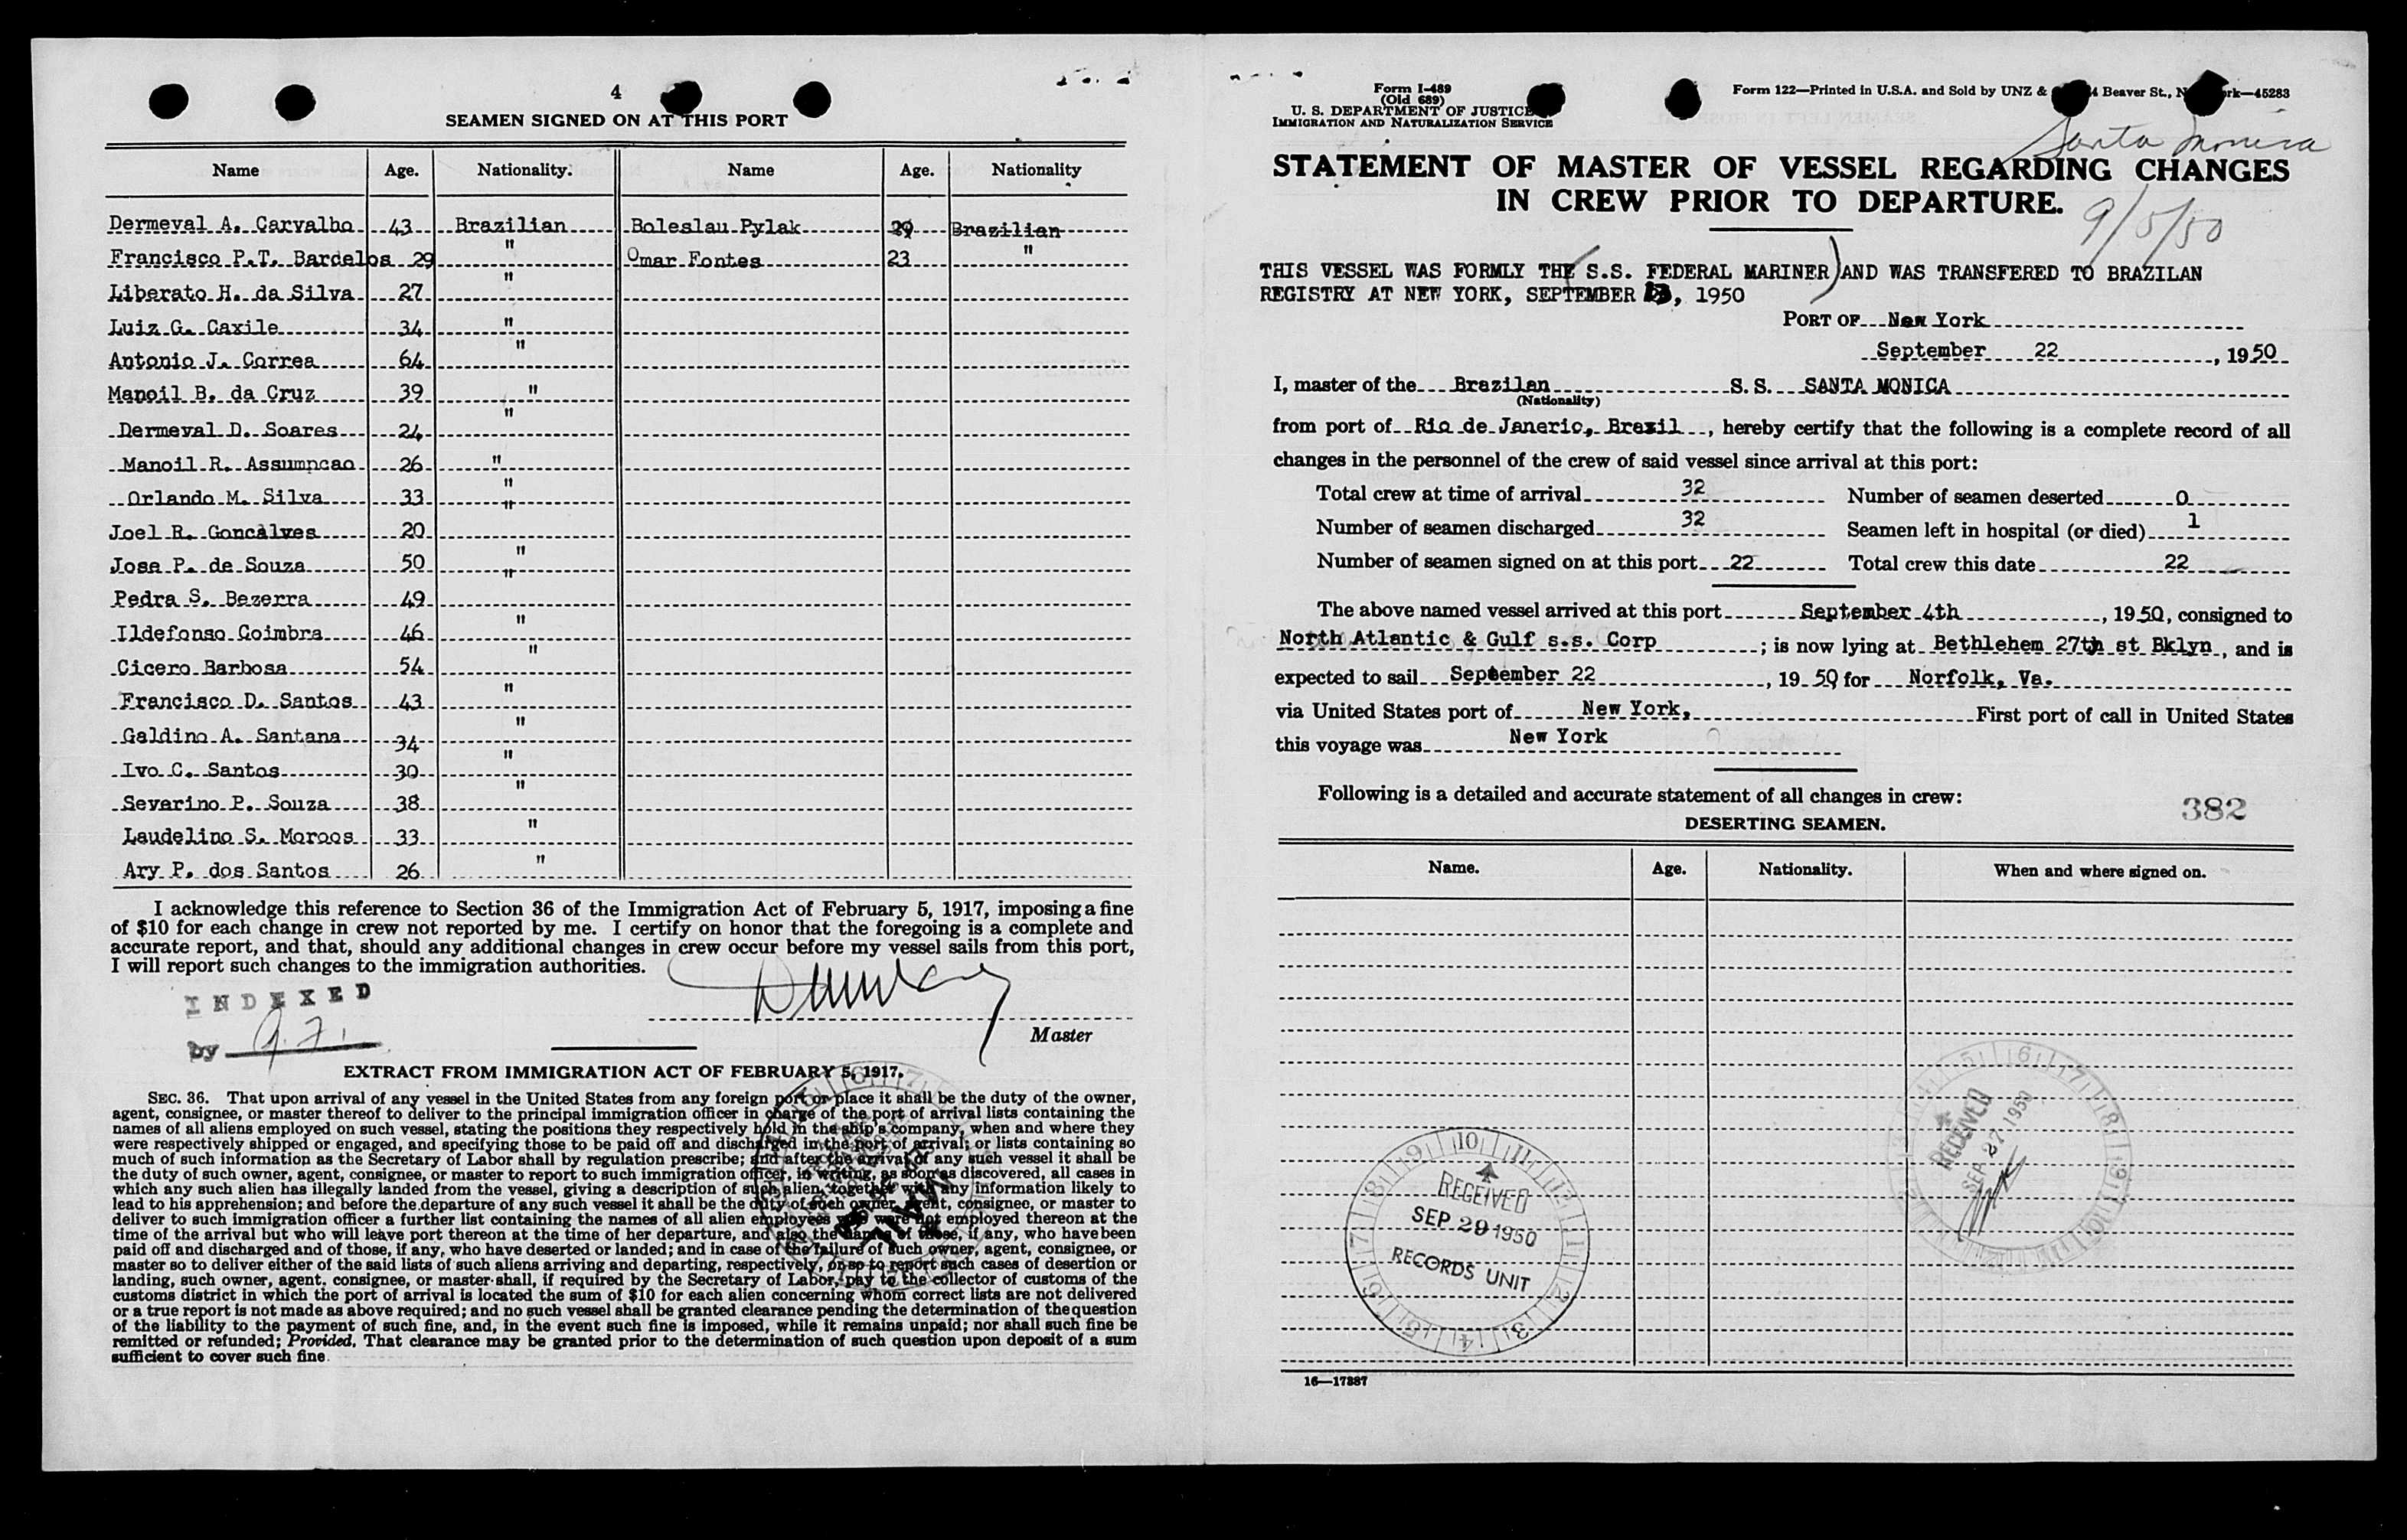 4
SEAMEN SIGNED ON AT THIS PORT
Name Age. Nationality. Name Age. Nationality
Dermeval A. Carvalho 43 Brazilian Boleslau Pylak 29 Brazilian
Francisco P.T. Bardelos 29 " Omar Fontes 23 "
Liberato H. da Silva 27 "
Luiz G. Caxile 34 "
Antonio J. Correa 64 "
Manoil B. da Cruz 39 "
Dermeval D. Soares 24 "
Manoil R. Assumpcao 26 "
Orlando M. Silva 33 "
Joel R. Goncalves 20 "
Jose P. de Souza 50 "
Pedra S. Bezerra 49 "
Ildefonso Coimbra 46 "
Cicero Barbosa 54 "
Francisco D. Santos 43 "
Galdino A. Santana 34 "
Ivo C. Santos 30 "
Severino P. Souza 38 "
Laudelino S. Moroos 33 "
Ary P. dos Santos 26 "
I acknowledge this reference to Section 36 of the Immigration Act of February 5, 1917, imposing a fine
of $10 for each change in crew not reported by me. I certify on honor that the foregoing is a complete and
accurate report, and that, should any additional changes in crew occur before my vessel sails from this port,
I will report such changes to the immigration authorities.
INDEXED
by
Master
EXTRACT FROM IMMIGRATION ACT OF FEBRUARY 5, 1917.
SEC. 36. That upon arrival of any vessel in the United States from any foreign port or place it shall be the duty of the owner,
agent, consignee, or master thereof to deliver to the principal immigration officer in charge of the port of arrival lists containing the
names of all aliens employed on such vessel, stating the positions they respectively hold in the ship's company, when and where they
were respectively shipped or engaged, and specifying those to be paid off and discharged in the port of arrival; or lists containing so
much of such information as the Secretary of Labor shall by regulation prescribe; and after the arrival of any such vessel it shall be
the duty of such owner, agent, consignee, or master to report to such immigration officer, in writing, as soon as discovered, all cases in
which any such alien has illegally landed from the vessel, giving a description of such alien, together with any information likely to
lead to his apprehension; and before the departure of any such vessel it shall be the duty of such owner, agent, consignee, or master to
deliver to such immigration officer a further list containing the names of all alien employees who were not employed thereon at the
time of the arrival but who will leave port thereon at the time of her departure, and also the names of those, if any, who have been
paid off and discharged and of those, if any, who have deserted or landed; and in case of the failure of such owner, agent, consignee, or
master so to deliver either of the said lists of such aliens arriving and departing, respectively, or so to report such cases of desertion or
landing, such owner, agent, consignee, or master shall, if required by the Secretary of Labor, pay to the collector of customs of the
customs district in which the port of arrival is located the sum of $10 for each alien concerning whom correct lists are not delivered
or a true report is not made as above required; and no such vessel shall be granted clearance pending the determination of the question
of the liability to the payment of such fine, and, in the event such fine is imposed, while it remains unpaid; nor shall such fine be
remitted or refunded; Provided, That clearance may be granted prior to the determination of such question upon deposit of a sum
sufficient to cover such fine.
Form I-489
(Old 689)
U. S. DEPARTMENT OF JUSTICE
IMMIGRATION AND NATURALIZATION SERVICE
Form 122—Printed in U.S.A. and Sold by UNZ & Beaver St., N rk—45283
Santa Monica
STATEMENT OF MASTER OF VESSEL REGARDING CHANGES
IN CREW PRIOR TO DEPARTURE.
9/5/50
THIS VESSEL WAS FORMLY THE (S.S. FEDERAL MARINER) AND WAS TRANSFERED TO BRAZILAN
REGISTRY AT NEW YORK, SEPTEMBER , 1950
PORT OF New York
September 22, 1950
I, master of the Brazilan S. S. SANTA MONICA
(Nationality)
from port of Rio de Janeric, Brazil, hereby certify that the following is a complete record of all
changes in the personnel of the crew of said vessel since arrival at this port:
Total crew at time of arrival 32 Number of seamen deserted 0
Number of seamen discharged 32 Seamen left in hospital (or died) 1
Number of seamen signed on at this port 22 Total crew this date 22
The above named vessel arrived at this port September 4th, 1950, consigned to
North Atlantic & Gulf s.s. Corp; is now lying at Bethlehem 27th st Bklyn, and is
expected to sail September 22, 1950 for Norfolk, Va.
via United States port of New York, First port of call in United States
this voyage was New York
Following is a detailed and accurate statement of all changes in crew:
382
DESERTING SEAMEN.
Name. Age. Nationality. When and where signed on.
RECEIVED
SEP 27 1950
RECEIVED
SEP 29 1950
RECORDS UNIT
16—17887